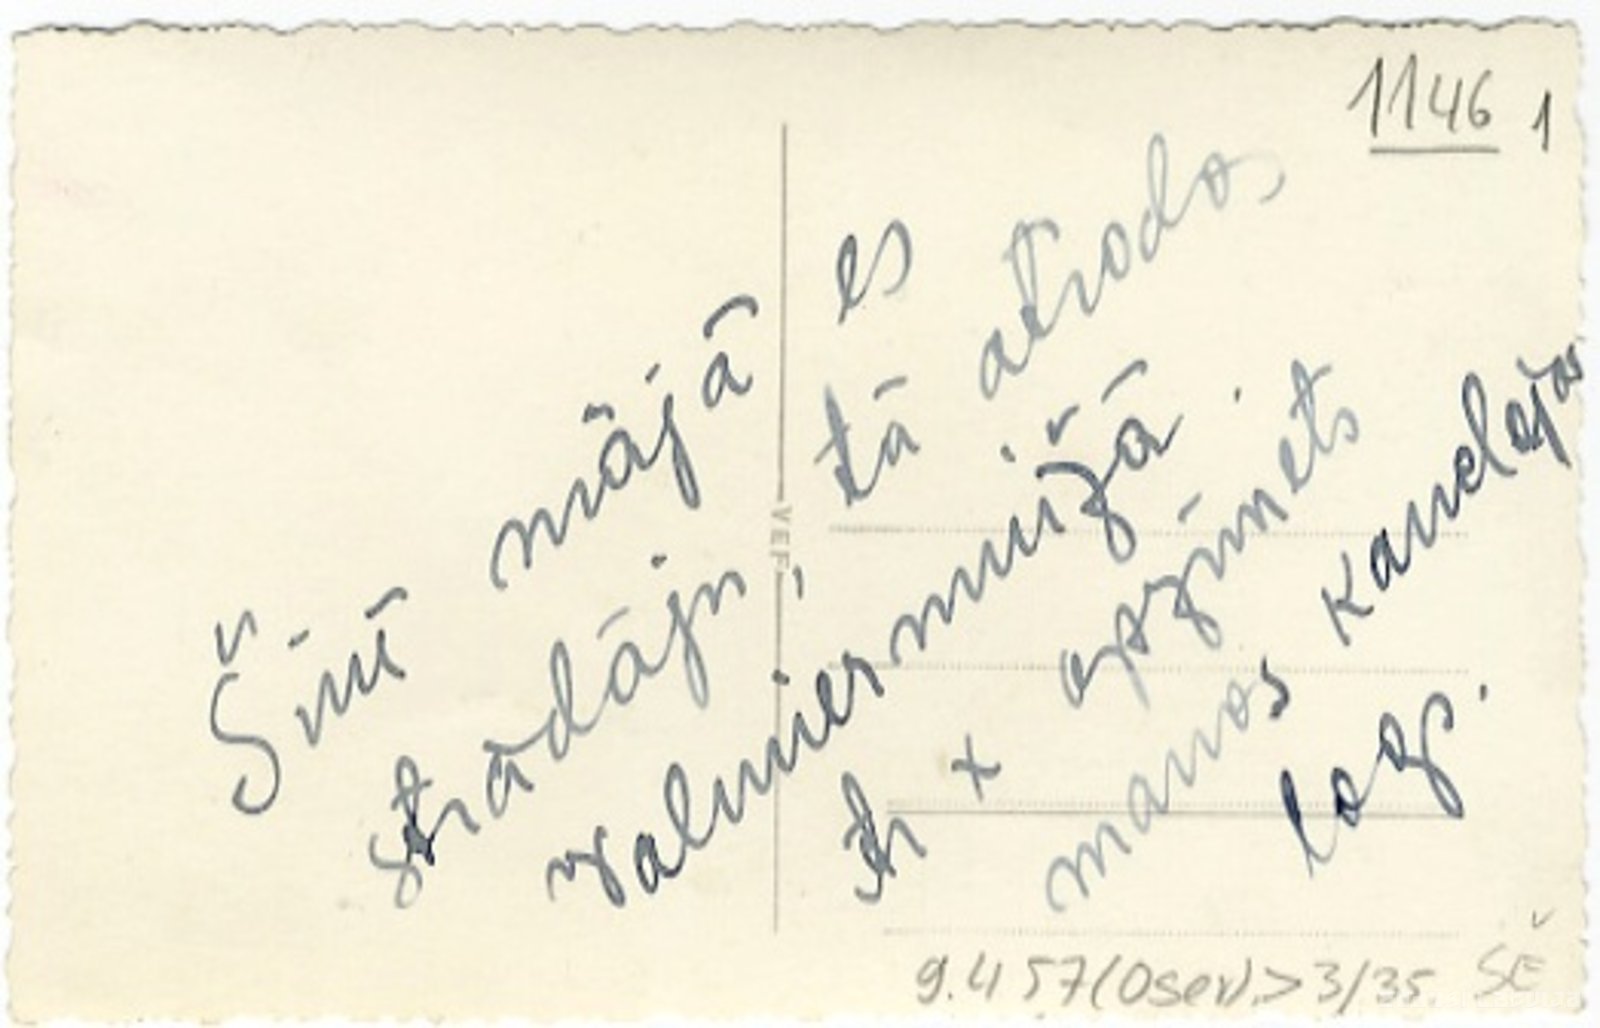 1146 1
Šinī mājā es
strādāju, tā atrodas
Valmiermuižā.
Ar x apzīmets
manas kancelejas
logs.
VEF
9.457(Oser) > 3/35 SĒ